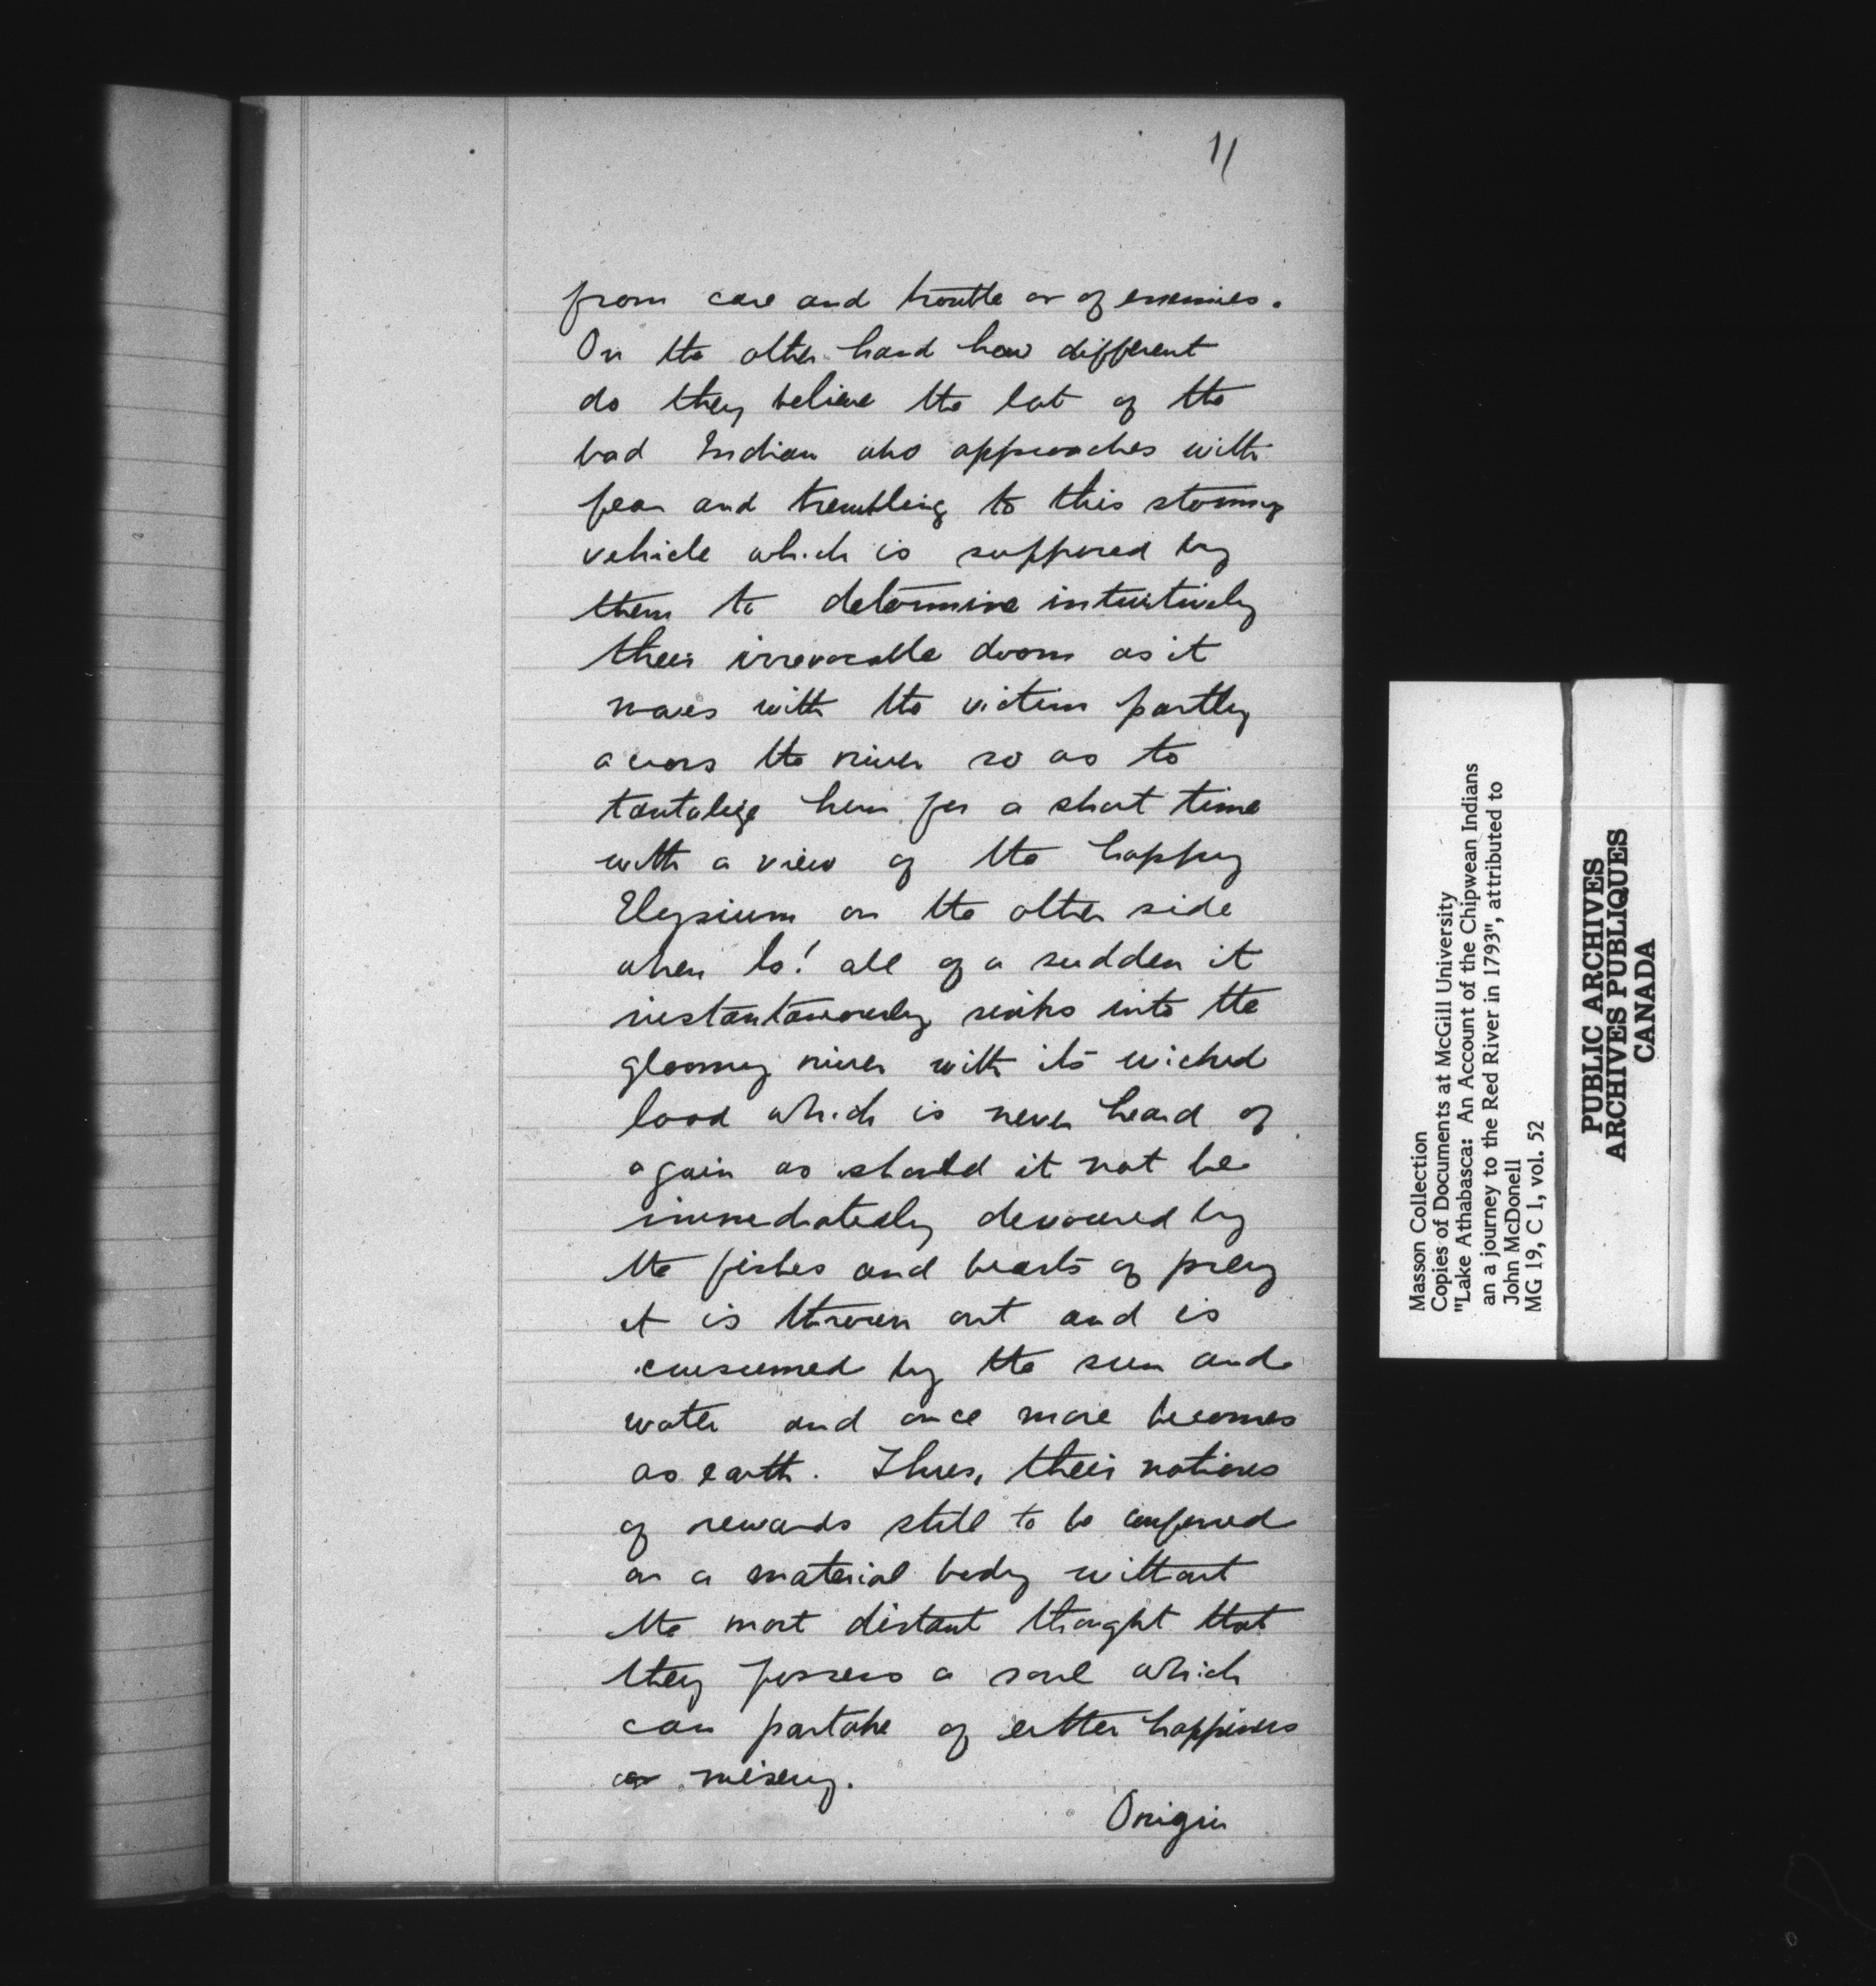 11
from care and trouble or of enemies.
On the other hand how different
do they believe the lot of the
bad Indian who approaches with
fear and trembling to this stormy
vehicle which is supposed by
them to determine intuitively
their irrevocable doom as it
moves with the victim partly
across the river so as to
tantalize him for a short time
with a view of the happy
Elysium on the other side
when lo! all of a sudden it
instantaneously sinks into the
gloomy river with its wicked
load which is never heard of
again as should it not be
immediately devoured by
the fishes and beasts of prey
it is thrown out and is
consumed by the sun and
water and once more becomes
as earth. Thus, their notions
of rewards still to be conferred
on a material body without
the most distant thought that
they possess a soul which
can partake of either happiness
or misery.
Origin
Masson Collection
Copies of Documents at McGill University
"Lake Athabasca: An Account of the Chipwean Indians
an a journey to the Red River in 1793", attributed to
John McDonell
MG 19, C 1, vol. 52
PUBLIC ARCHIVES
ARCHIVES PUBLIQUES
CANADA